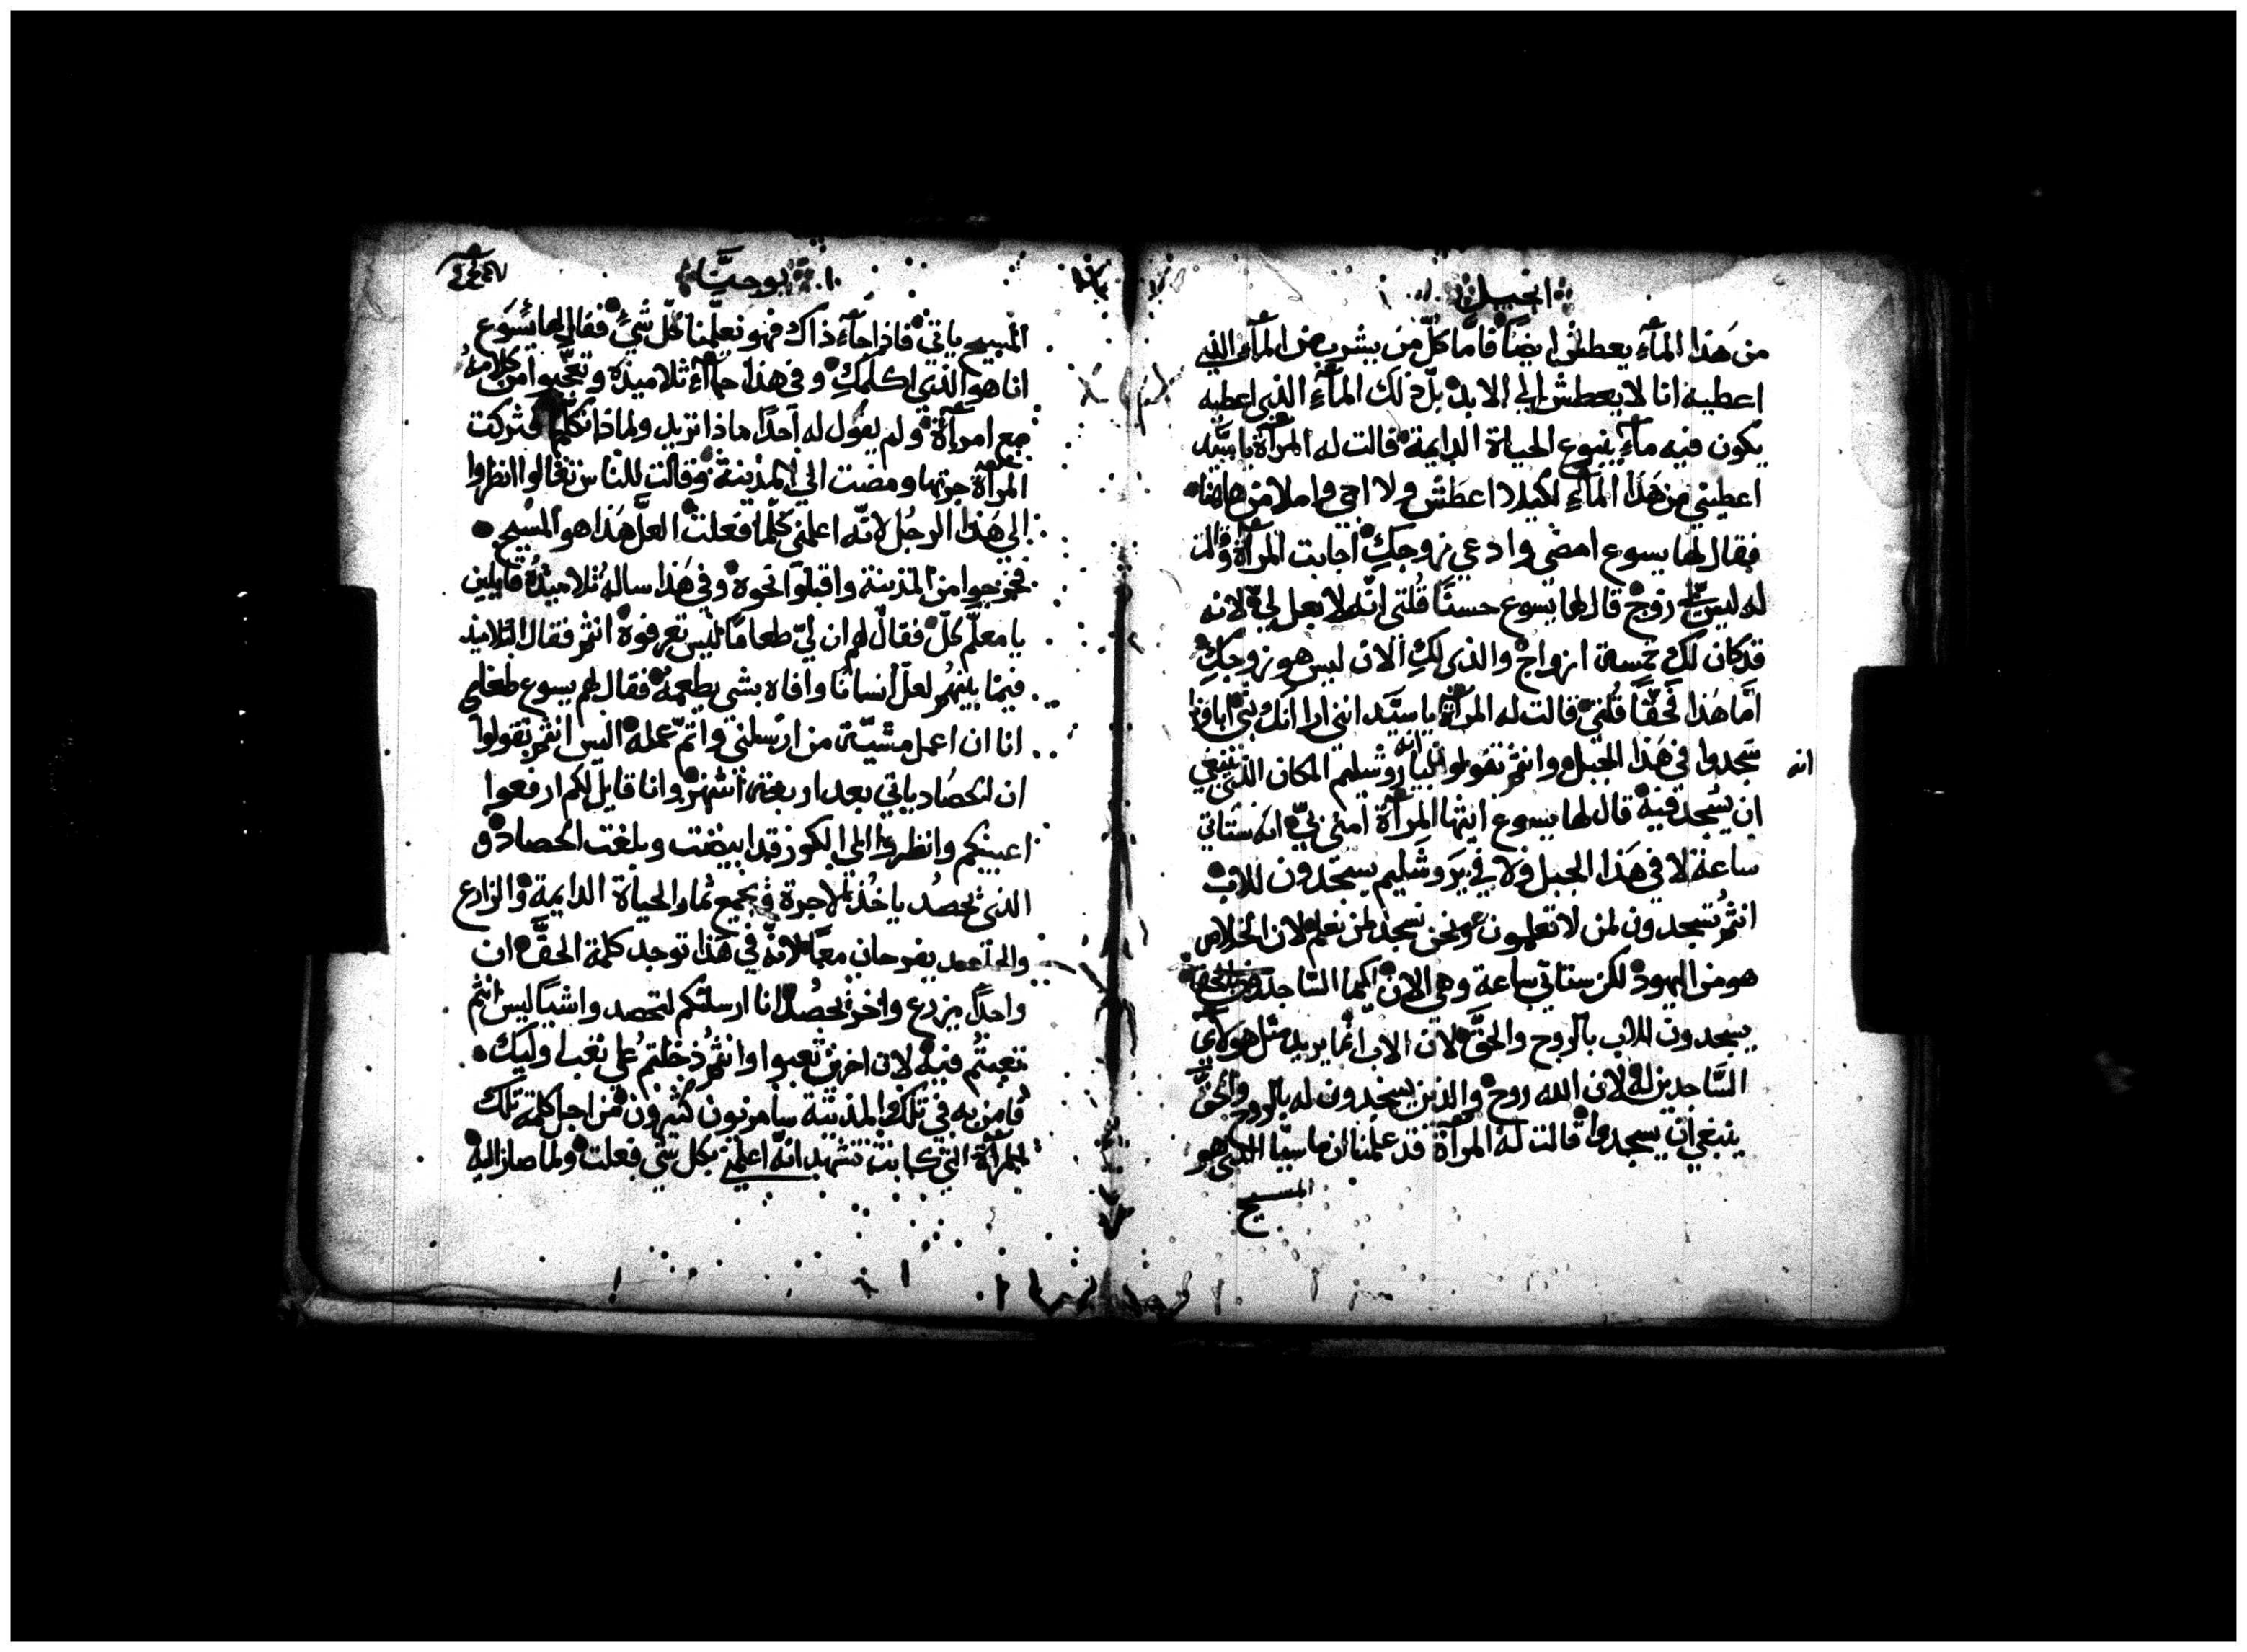 انجيل
من هذا المآء يعطش ايضًا فاما كلّ من يشرب من المآء الذي
اعطيه انا لا يعطش الى الابد بل ذلك المآء الذي اعطيه
يكون فيه مآء ينبوع الحياة الدايمة قالت له المرآة يا سيّد
اعطيني من هذا المآء لكيلا اعطش ولا اجي واملا من هاهنا
فقال لها يسوع امضي وادعي زوجكِ اجابت المرآة وقالت
له ليس لي زوج قال لها يسوع حسنًا قُلتي انّه لا بعل لي لانه
قد كان لكِ خمسة ازواج والذي لكِ الان ليس هو زوجكِ
امّا هذا فحقًا قُلتي قالت له المرآة يا سيّد انني ارا انك نبي اباونا
سجدوا في هذا الجبل وانتم تقولوا انه بيروشليم المكان الذي ينبغي
انه
ان يُسجد فيه قال لها يسوع ايتها المرآة امني بي انه ستاتي
ساعة لا في هذا الجبل ولا في يروشليم يسجدون للاب
انتُم تسجدون لمن لا تعلمون ونحن نسجد لمن نعلم لان الخلاص
هو من اليهود لكن ستاتي ساعة وهي الان لكيما السّاجدون
يسجدون للاب بالروح والحقّ لان الاب انما يريد مثل هولاي
السّاجدين له لان الله روح والذين يسجدون له بالروح والحقّ
ينبغي ان يسجدوا قالت له المرآة قد علمنا ان ماسيّا الذي هو
المسيح
يوحنّا
المسيح ياتي فاذا جآء ذاك فهو يعلّمنا كلّ شي فقال لها يسوع
انا هو الذي اكلمكِ وفي هذا جآء تلاميذه وتعجّبوا من كلامه
مع امرآة ولم يقول له احدًا ماذا تريد ولماذا تكلّمها فتركت
المرآة جرتها ومضت الى المدينة وقالت للناس تعالوا انظروا
الى هذا الرجُل لانّه اعلمني كلّما فعلت العلّ هذا هو المسيح
فخرجوا من المدينة واقبلوا نحوه وفي هذا ساله تلاميذه قايلين
يا معلّم كلّ فقال لهم ان لي طعامًا ليس تعرفوه انتم فقال التلاميذ
فيما بينهُم لعلّ انسانًا وافاه بشي يطعمه فقال لهم يسوع طعامي
انا ان اعمل مشيّة من ارسلني واتمّ عمله اليس انتم تقولوا
ان الحصاد ياتي بعد اربعة اشهر وانا قايل لكم ارفعوا
اعينكم وانظروا الى الكور قد ابيضت وبلغت الحصاد و
الذي يحصُد ياخُذ الاجرة ويجمع ثمار الحياة الدايمة والزارع
والحاصد يفرحان معًا لانّه في هذا توجد كلمة الحقّ ان
واحدًا يزرع واخر يحصُد انا ارسلتكم لتحصد واشيًا ليس انتُم
تعبتُم فيه لان اخرين تعبوا وانتُم دخلتم على تعب اوليك
فامن به في تلك المدينة سامريون كثيرون من اجل كلمة تلك
المرآة التي كانت تشهد انّه اعلمني بكل شي فعلت ولما صار اليه